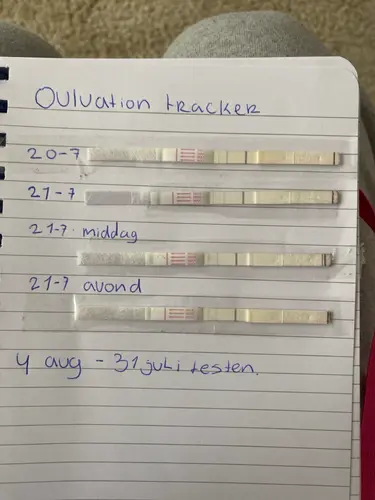 Ouluvation tracker
20-7
21-7
21-7 middag
21-7 avond
4 aug - 31 juli testen.